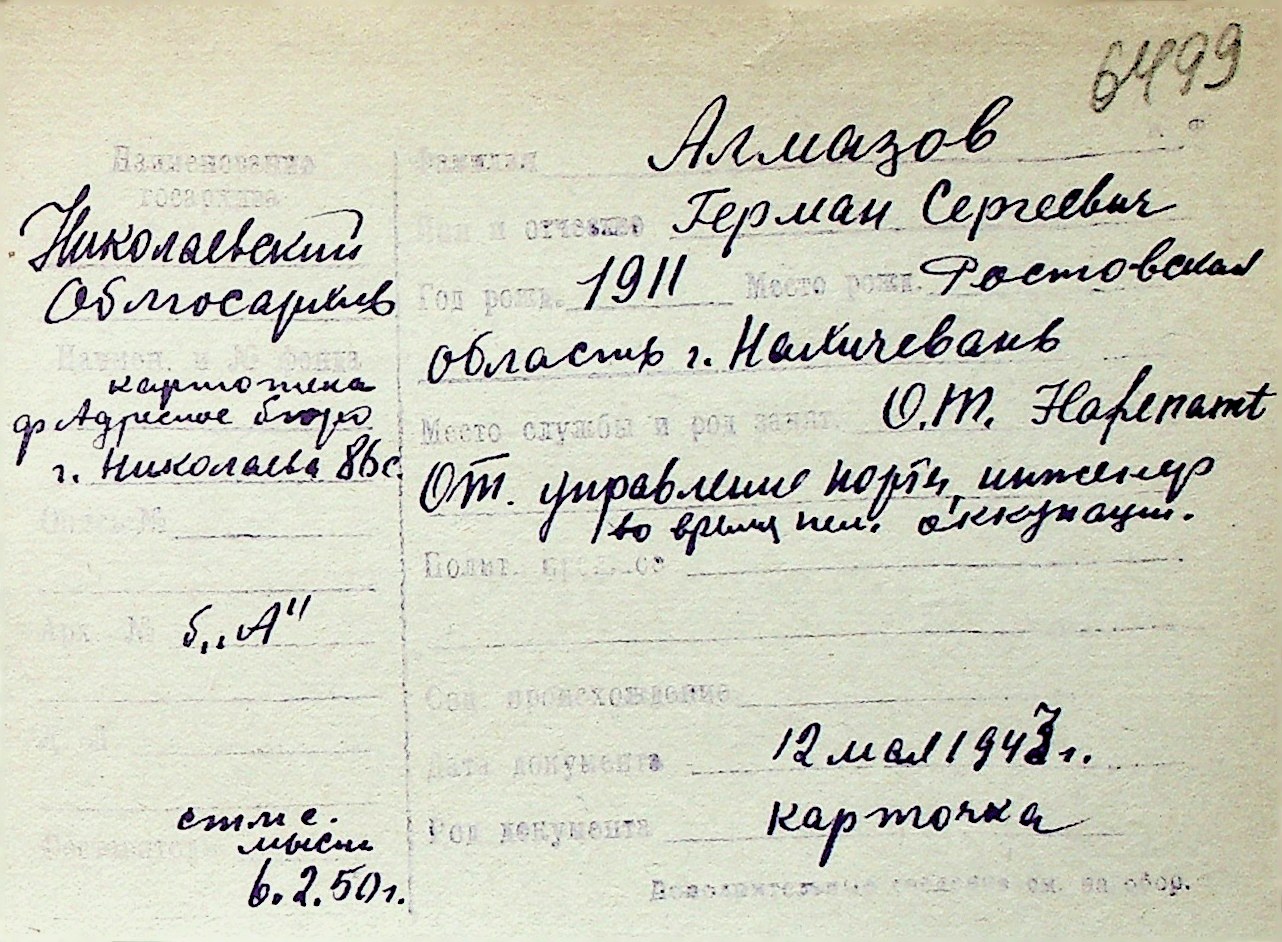 6499
Наименование
госархива
Николаевский
Облгосархив
Наимен. и № фонда
картотека
ф Адресное бюро
г. Николаева 86с.
Опись №
Арх. №
б. „А"
6.2.50г.
Фамилия Алмазов
Имя и отчество Герман Сергеевич
Год рожд. 1911 Место рожд. Ростовская
область г. Нахичевань
Место службы и род занят. О.Т.
ОТ. управление порта, инженер
во время нем. оккупации.
Полит. прошлое
Соц происхождение
Дата документа 12 мая 1943 г.
Род документа карточка
Дополнительные сведения см. на обор.